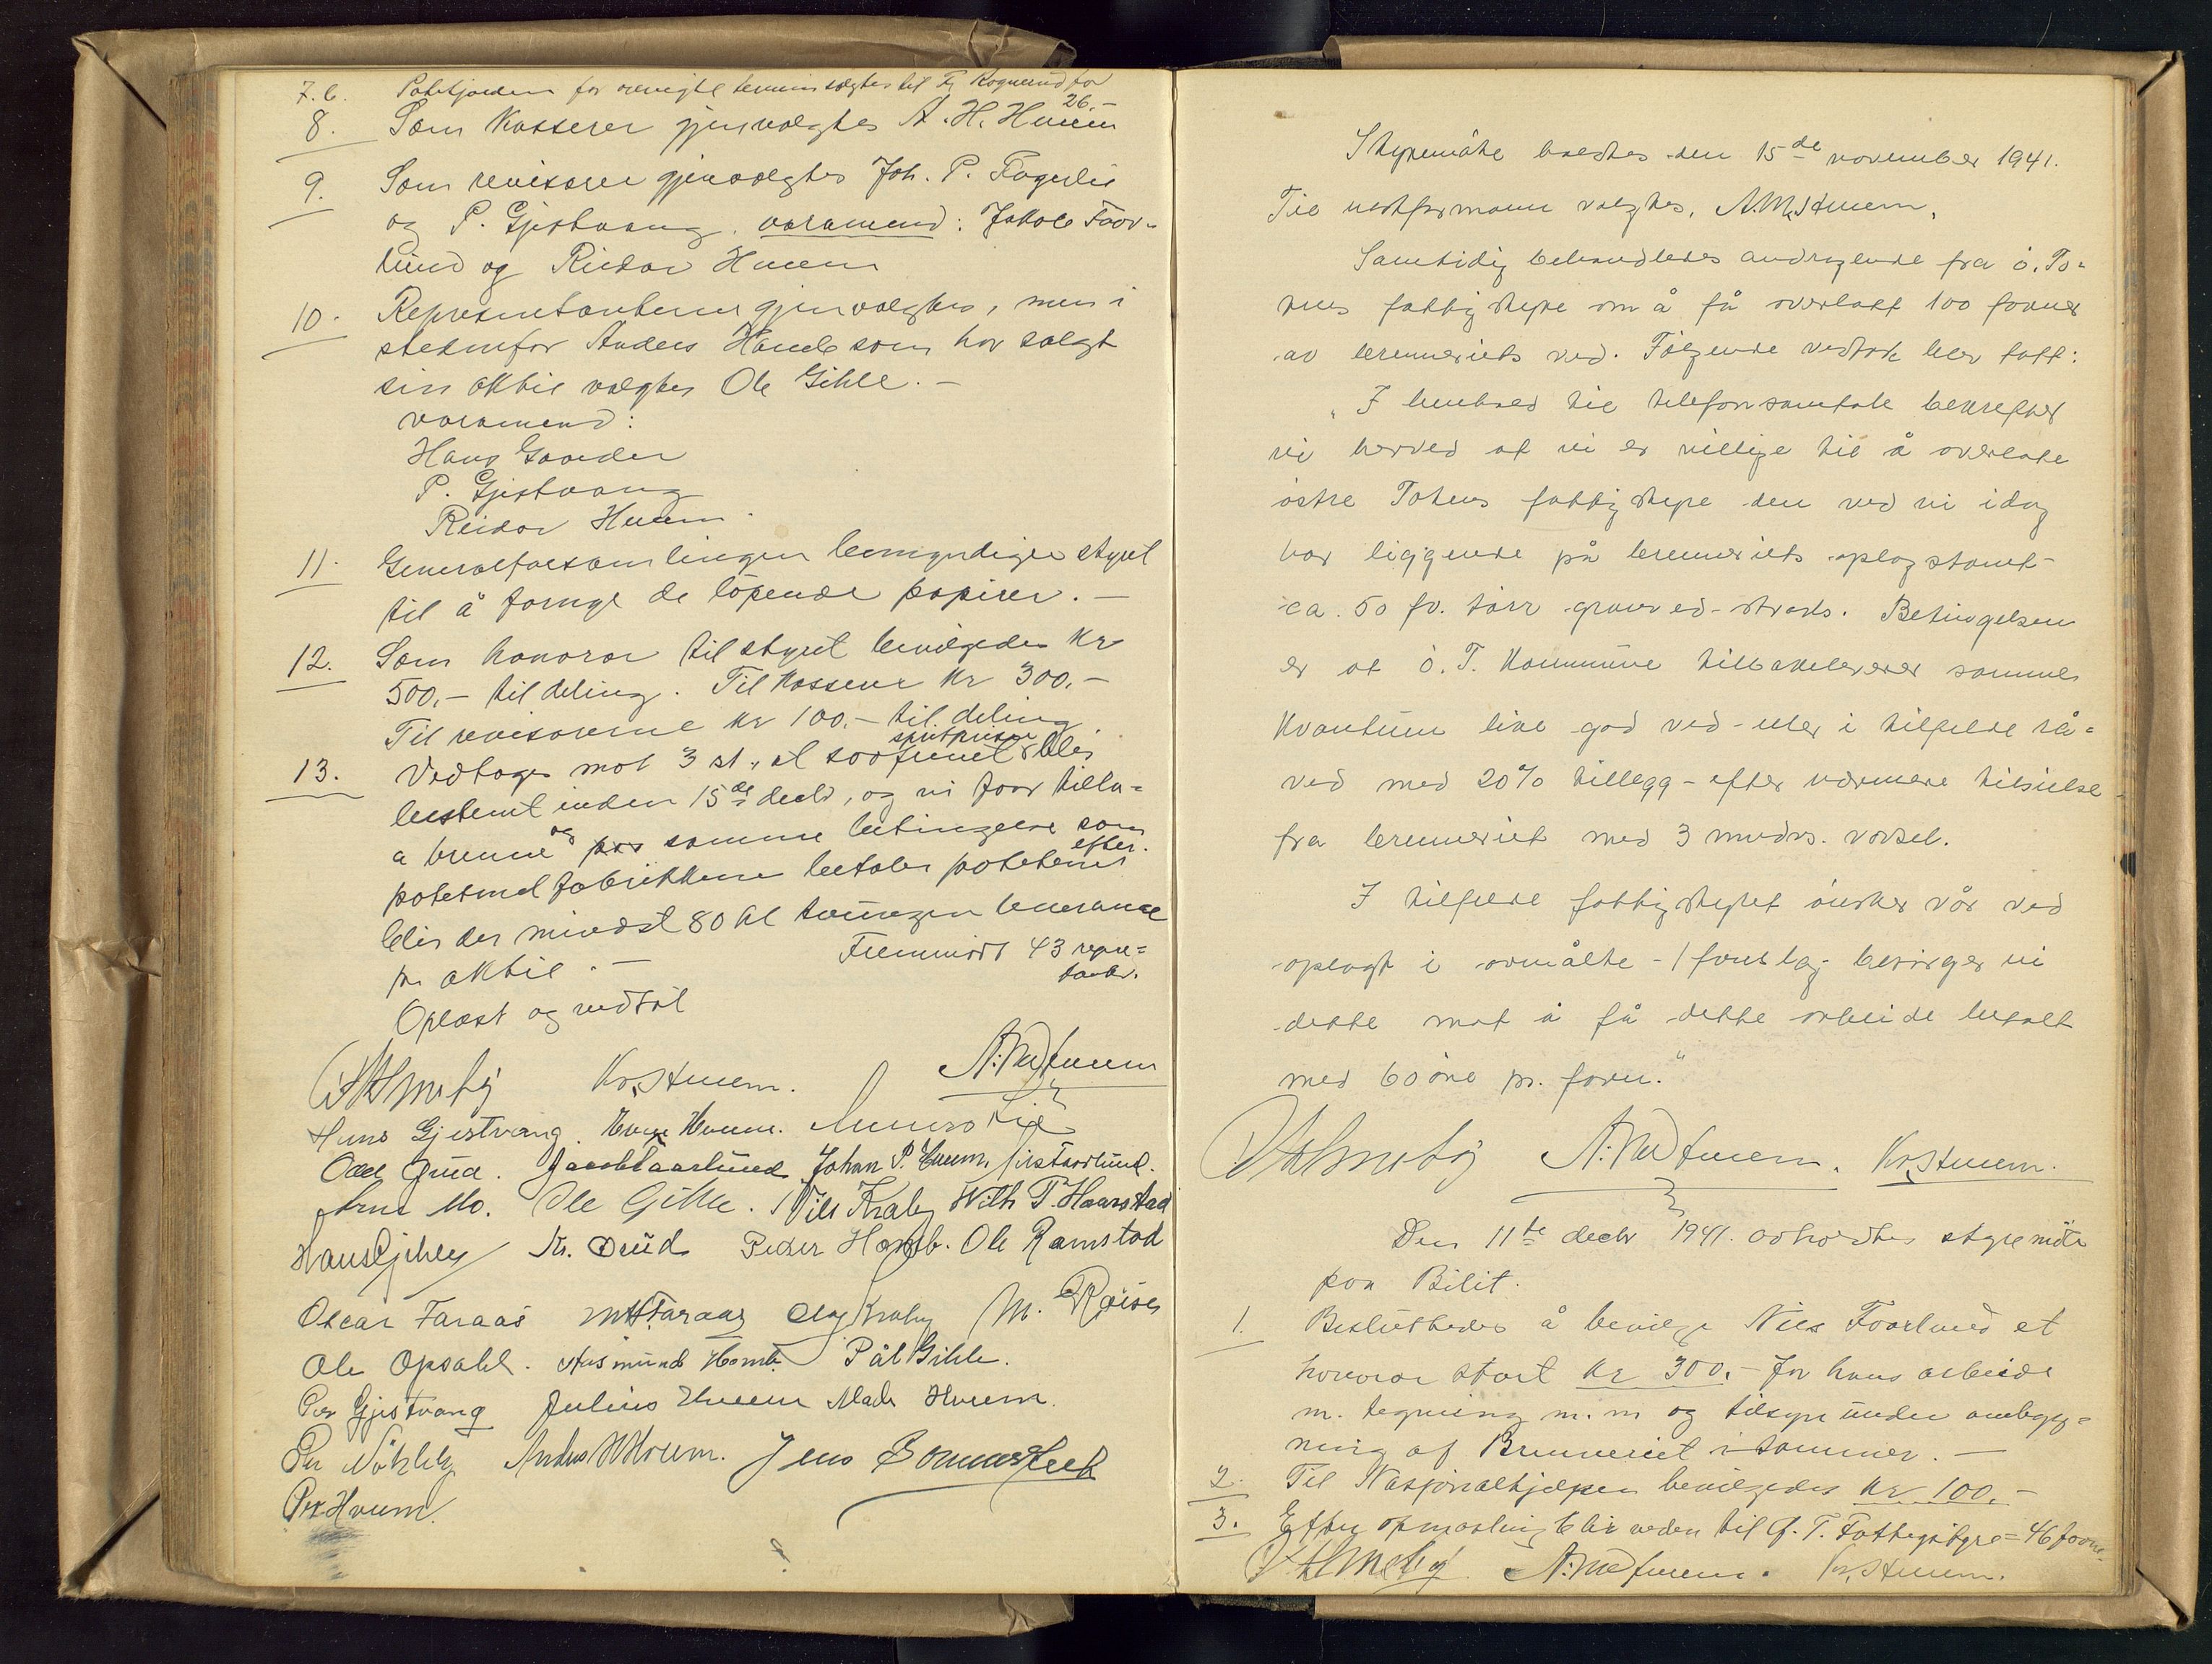 7.b. Potetjorden for øvrigt termin solgtes til Fr. Rognerud for
26.-
8. Som Kasserer gjenvalgtes A. H. Hveem
9. Som revisorer gjenvalgtes Joh. P. Fagerlie
og P. Gjestvang. varamend: Jakob Faar-
lund og Reidar Hveem
10. Representanterne gjenvalgtes, men i
stedenfor Anders Homb som har solgt
sin aktie valgtes Ole Gihle. -
varamend:
Hans Gaarder
P. Gjestvang
Reidar Hveem.
11. Generalforsamlingen bemyndiger styret
til å fornye de løpende papirer. -
12. Som honorar til styret bevilgedes Kr
500,- til deling. Til Kasserer Kr 300,-
Til revisorerne Kr 100.- til deling
spritprisen
13. Vedtoges mot 3 st., at saafremt blir
bestemt inden 15de decbr, og vi faar tilla-
a brenne og paa samme betingelser som
efter.
potetmelfabrikkene betaler potetene
blir der mindst 80 hl tvungen leveranse
pr. aktie. - Fremmøtt 43 repre-
sentr.
Oplæst og vedtat
Kr. Hveem. A. M. Hveem
Hans Gjestvang. Hveem.
Odd Grud. Jacob Faarlund Johan P. Hveem,
Arne Mo. Ole Gihle. Nils Kraby Wilh P. Haarstad
Hans Gihle Kr. Grud Peder Homb. Ole Ramstad
Oscar Faraas M. H. Faraas Olaf Kraby M. Røise
Ole Opsahl. Aasmund Homb Pål Gihle.
Per Gjestvang Julius Hveem Mads Hveem.
Per Nøkleby Anders H Hveem. Jens Sommerfelt
Per Hveem.
Styremöte holdtes den 15de november 1941.
Til nestformann valgtes, A. M. Hveem,
Samtidig behandledes andragende fra ö. To-
tens fattigstyre om å få overlatt 100 favner
av brenneriets ved. Fölgende vedtak blev tatt:
"I henhold til telefonsamtale bekrefter
vi herved at vi er villige til å overlate
östre Totens fattigstyre den ved vi idag
har liggende på brenneriets oplagstomt-
ca. 50 fv. törr granved - straks. Betingelsen
er at ö. T. Kommune tilbakeleverer samme
kvantum like god ved - eller i tilfelde rå-
ved med 20% tillegg - efter nærmere tilsielse
fra brenneriet med 3 mndrs. varsel.
I tilfelde fattigstyret önsker vår ved
oplagt i avmålte - 1 favns lag besörger vi
dette mot å få dette arbeide betalt
med 60 öre pr. favn."
A. M. Hveem. Kr. Hveem.
Den 11te decbr 1941. avholdtes styremöte
paa Bilit.
1. Besluttedes å bevilge Nils Faarlund et
honorar stort kr 300.- for hans arbeide
m. tegning m. m og tilsyn under ombygg-
ning af Brenneriet i sommer. -
2. Til Nasjonalhjelpen bevilgedes kr. 100.-
3. Efter opmaaling blir veden til Ö. T. Fattigstyre = 46 favne.
A. M. Hveem. Kr. Hveem.